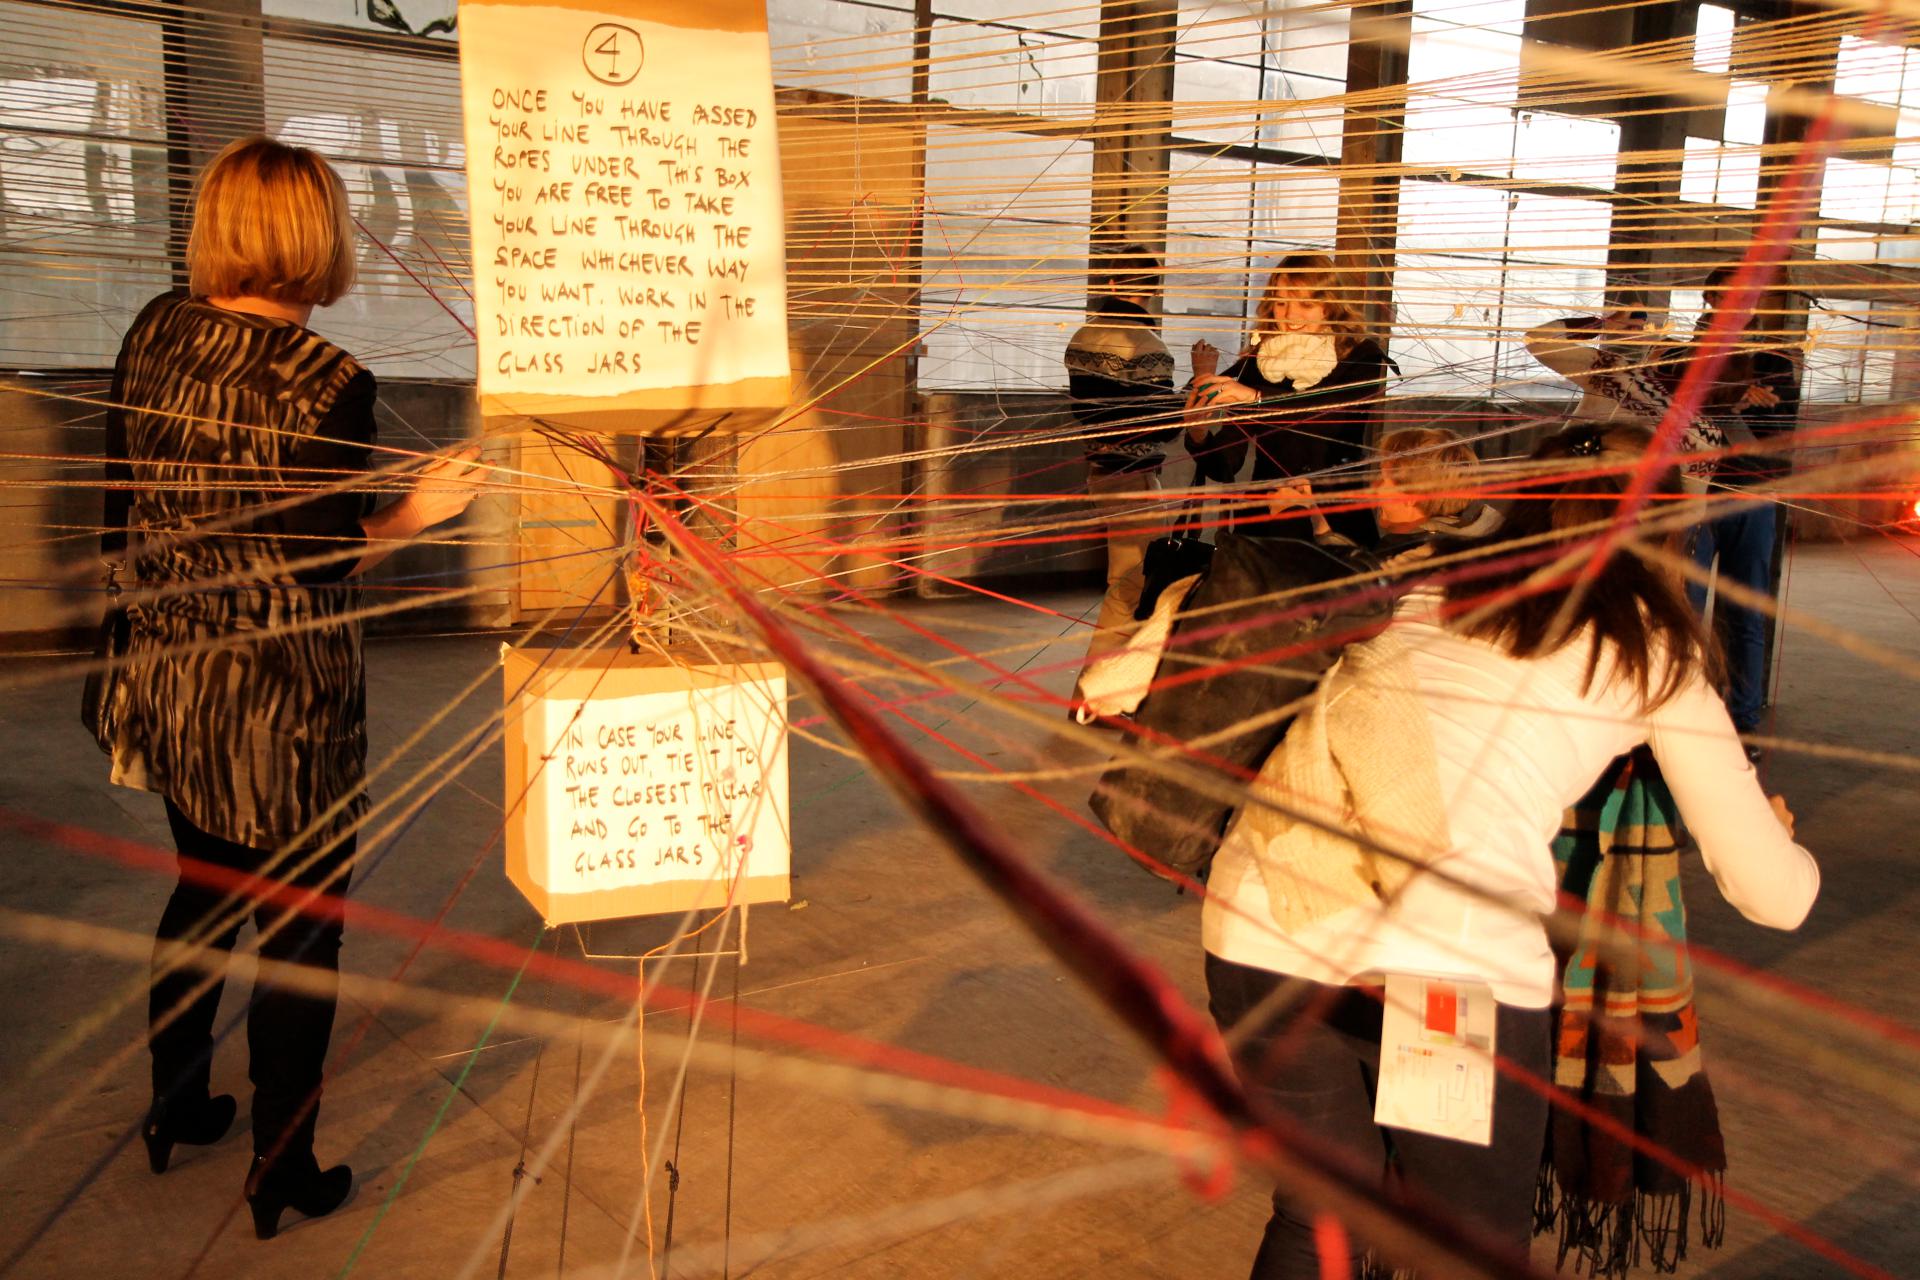 4
ONCE YOU HAVE PASSED
YOUR LINE THROUGH THE
ROPES UNDER THIS BOX
YOU ARE FREE TO TAKE
YOUR LINE THROUGH THE
SPACE WHICHEVER WAY
YOU WANT. WORK IN THE
DIRECTION OF THE
GLASS JARS
IN CASE YOUR LINE
RUNS OUT, TIE IT TO
THE CLOSEST PILLAR
AND GO TO THE
GLASS JARS